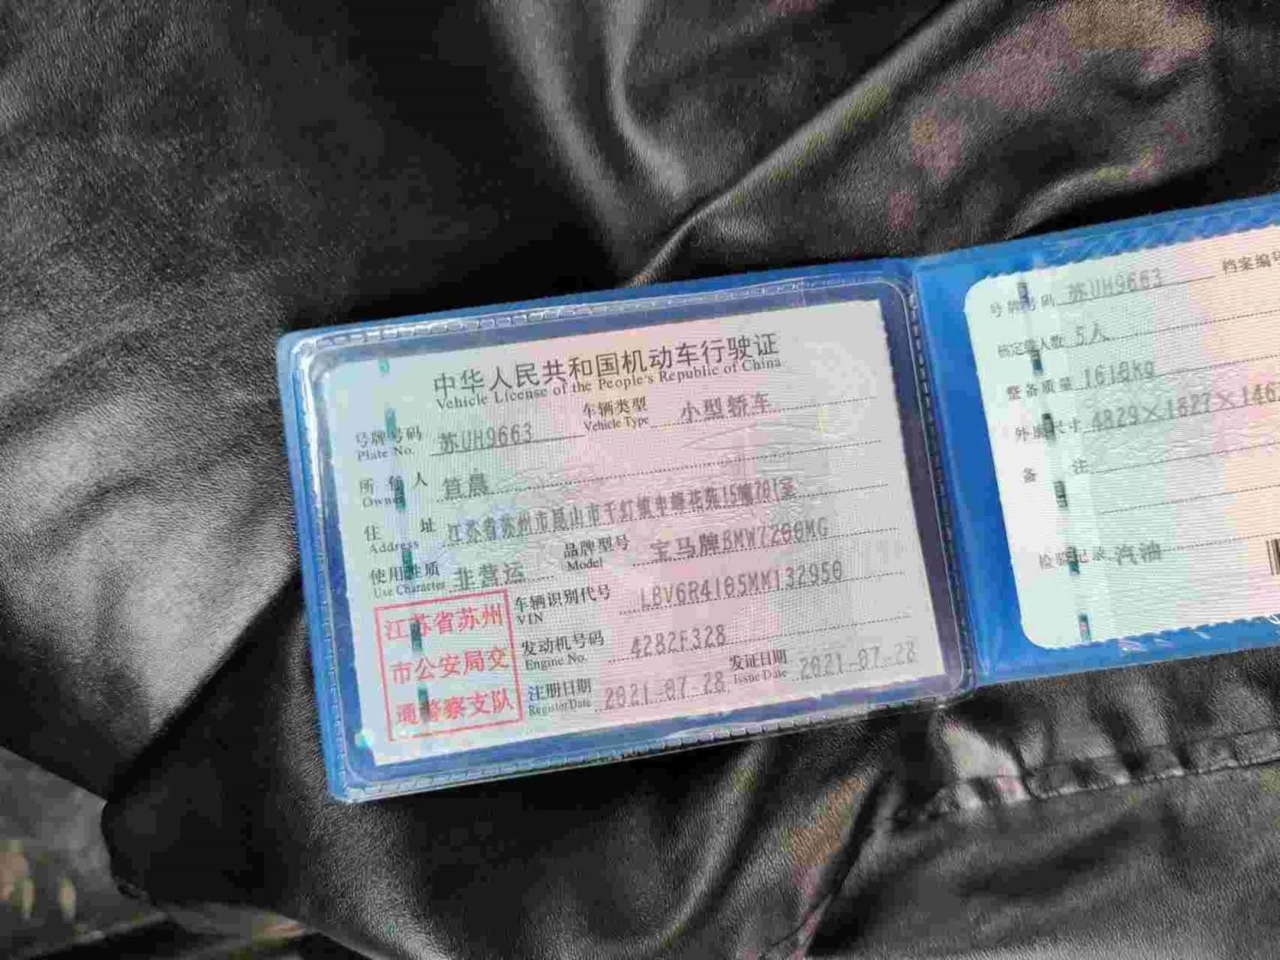 中华人民共和国机动车行驶证
Vehicle License of the People's Republic of China
号牌号码 苏UH9663 车辆类型 小型轿车
Plate No. Vehicle Type
所有人 笪晨
Owner
住址 江苏省苏州市昆山市千灯镇中峰花苑15幢701室
Address
使用性质 非营运 品牌型号 宝马牌BMW7200MG
Use Character Model
江苏省苏州
市公安局交
通警察支队
车辆识别代号 LBV6R4105MM132950
VIN
发动机号码 4282F328
Engine No.
注册日期 2021-07-28 发证日期 2021-07-28
Register Date Issue Date
号牌号码 苏UH9663 档案编号
核定载人数 5人
整备质量 1618kg
外廓尺寸 4829×1827×146
备注
检验记录 汽油